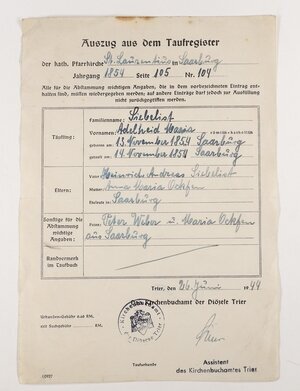 Auszug aus dem Taufregister
der kath. Pfarrkirche St. Laurentius in Saarburg
Jahrgang 1854 Seite 105 Nr. 104
Alle für die Abstammung wichtigen Angaben, die in dem vorbezeichneten Eintrag ent-
halten sind, müssen wiedergegeben werden; auf andere Einträge darf jedoch zur Ausfüllung
nicht zurückgegriffen werden.
Täufling:
Familienname: Siebelist
Vornamen: Adelheid Maria römisch-katholisch
geboren am: 13. November 1854 Saarburg
getauft am: 14. November 1854 Saarburg
Eltern:
Vater: Heinrich Andreas Siebelist
Mutter: Anna Maria Ockfen
Eheleute in Saarburg
Sonstige für die
Abstammung
wichtige
Angaben:
Paten: Peter Weber u. Maria Ockfen
aus Saarburg
Randvermerk
im Taufbuch
Trier, 26. Juni 1944
Kirchenbuchamt der Diözese Trier
Urkunden-Gebühr 0.60 RM.
mit Suchgebühr RM.
Assistent
des Kirchenbuchamtes Trier